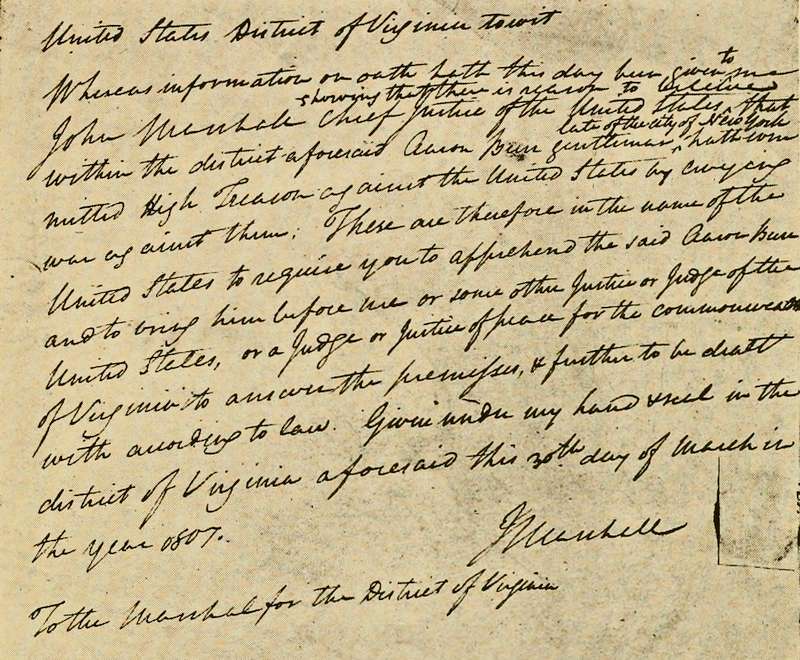 United States District of Virginia towit
Whereas information on oath hath this day been given to me
John Marshall Chief Justice of the United States, that
showing that there is reason to believe
within the district aforesaid Aaron Burr gentleman, hath com
late of the city of New York
mitted High Treason against the United States by levying
war against them; These are therefore in the name of the
United States to require you to apprehend the said Aaron Burr
and to bring him before me or some other Justice or Judge of the
United States, or a Judge or Justice of peace for the commonwealth
of Virginia to answer the premisses, & further to be dealt
with according to law. Given under my hand & seal in the
district of Virginia aforesaid this 30th. day of March in
the year 1807.
J Marshall
To the Marshal for the District of Virginia